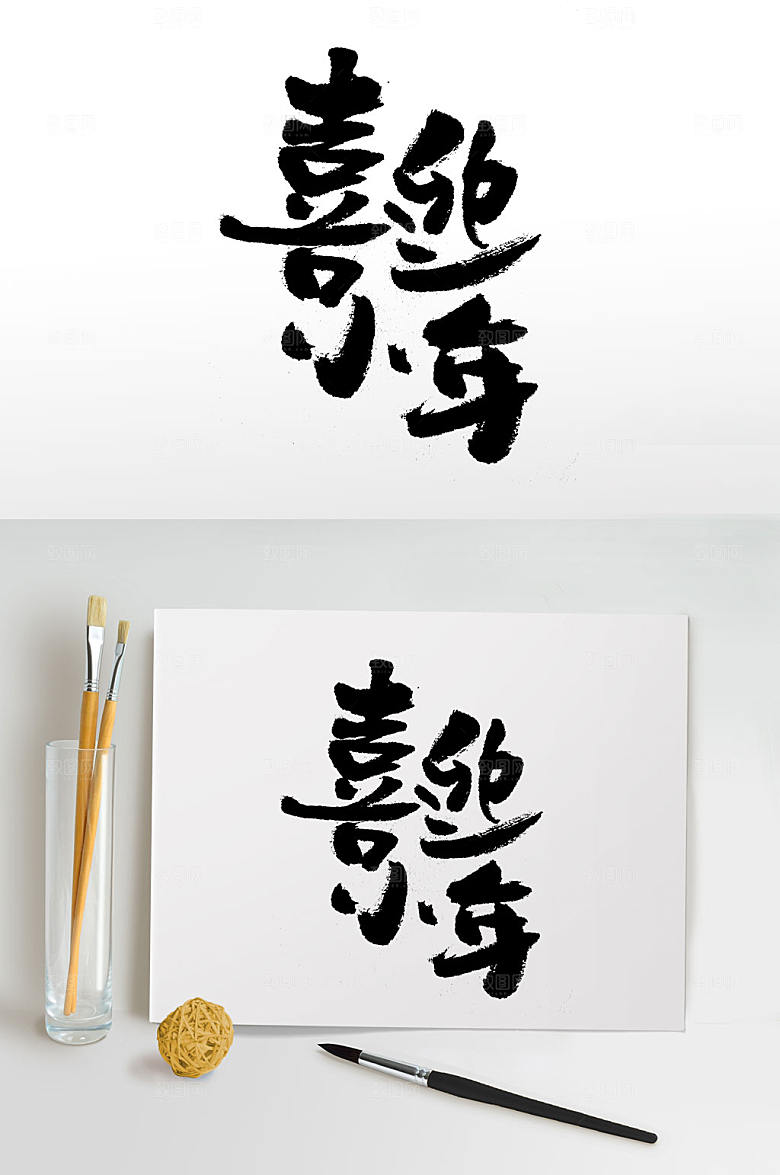 喜迎
小年
喜迎
小年